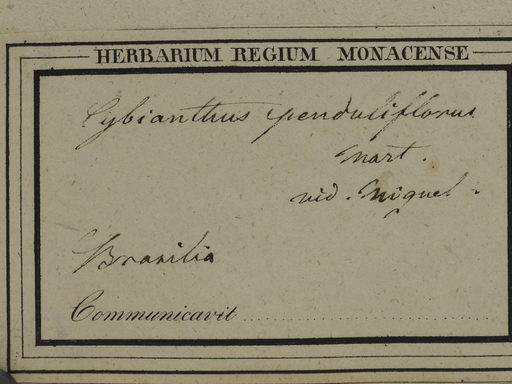 HERBARIUM REGIUM MONACENSE
Cybianthus penduliflorus
Mart.
vid. Miquel.
Brasilia
Communicavit